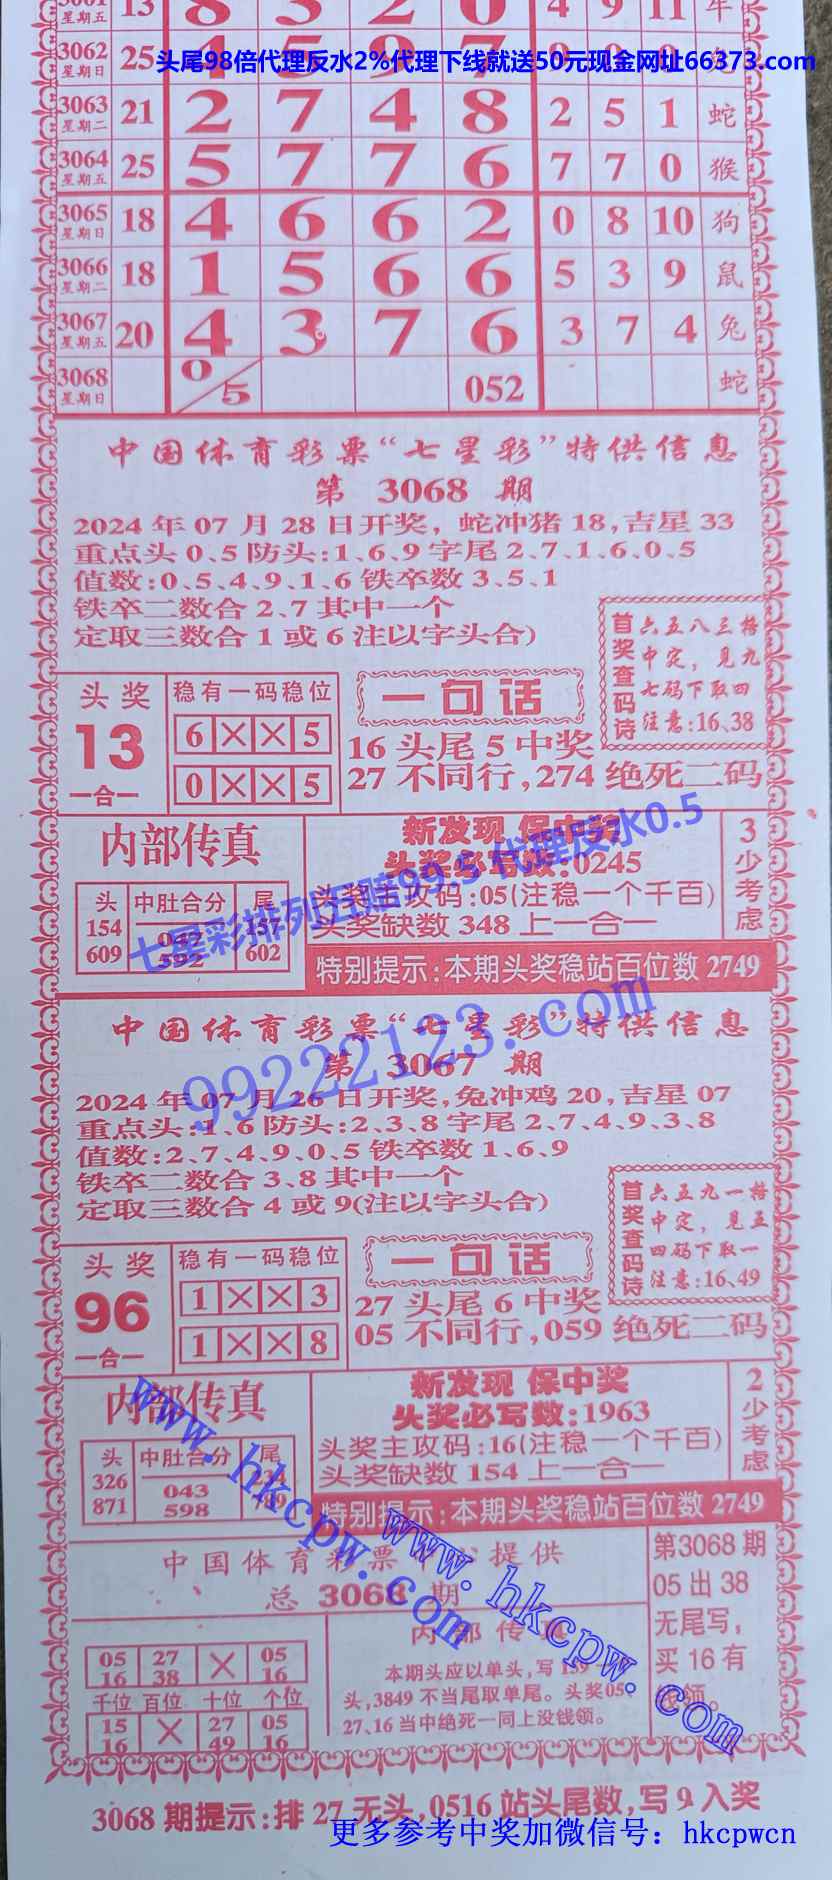 3061 星期五 13 8 3 2 0 4 9 11 牛
3062 星期日 25 4 5 9 7 9 9 0 兔
头尾98倍代理反水2%代理下线就送50元现金网址66373.com
3063 星期二 21 2 7 4 8 2 5 1 蛇
3064 星期五 25 5 7 7 6 7 7 0 猴
3065 星期日 18 4 6 6 2 0 8 10 狗
3066 星期二 18 1 5 6 6 5 3 9 鼠
3067 星期五 20 4 3 7 6 3 7 4 兔
3068 星期日 0/5 052 蛇
中国体育彩票“七星彩”特供信息
第 3068 期
2024 年 07 月 28 日开奖, 蛇冲猪 18,吉星 33
重点头 0、5 防头:1、6、9 字尾 2、7、1、6、0、5
值数:0、5、4、9、1、6 铁卒数 3、5、1
铁卒二数合 2、7 其中一个
定取三数合 1 或 6 注以字头合)
首奖查码诗
六五八三格
中定，见九
七码下取四
注意:16、38
头奖
13
一合一
稳有一码稳位
6 × × 5
0 × × 5
一句话
16 头尾 5 中奖
27 不同行,274 绝死二码
内部传真
头 中肚合分 尾
154 047 157
609 592 602
新发现 保中奖
头奖必写数:0245
头奖主攻码:05(注稳一个千百)
头奖缺数 348 上一合一
3少考虑
特别提示:本期头奖稳站百位数 2749
七星彩排列五赔99.5 代理反水0.5
99222123.com
中国体育彩票“七星彩”特供信息
第 3067 期
2024 年 07 月 26 日开奖,兔冲鸡 20,吉星 07
重点头:1、6 防头:2、3、8 字尾 2、7、4、9、3、8
值数:2、7、4、9、0、5 铁卒数 1、6、9
铁卒二数合 3、8 其中一个
定取三数合 4 或 9(注以字头合)
首奖查码诗
六五九一格
中定，见五
四码下取一
注意:16、49
头奖
96
一合一
稳有一码稳位
1 × × 3
1 × × 8
一句话
27 头尾 6 中奖
05 不同行,059 绝死二码
内部传真
头 中肚合分 尾
326 043 234
871 598 789
新发现 保中奖
头奖必写数:1963
头奖主攻码:16(注稳一个千百)
头奖缺数 154 上一合一
2少考虑
特别提示:本期头奖稳站百位数 2749
www.hkcpw.com
www.hkcpw.com
中国体育彩票 提供
总 3068 期
05 27 × 05
16 38 16
千位 百位 十位 个位
15 × 27 05
16 49 16
内部传
本期头应以单头,写 159
头,3849 不当尾取单尾。头奖05、
27、16 当中绝死一同上没钱领。
第3068 期
05 出 38
无尾写，
买 16 有
钱领。
3068 期提示:排 27 无头,0516 站头尾数,写 9 入奖
更多参考中奖加微信号：hkcpwcn